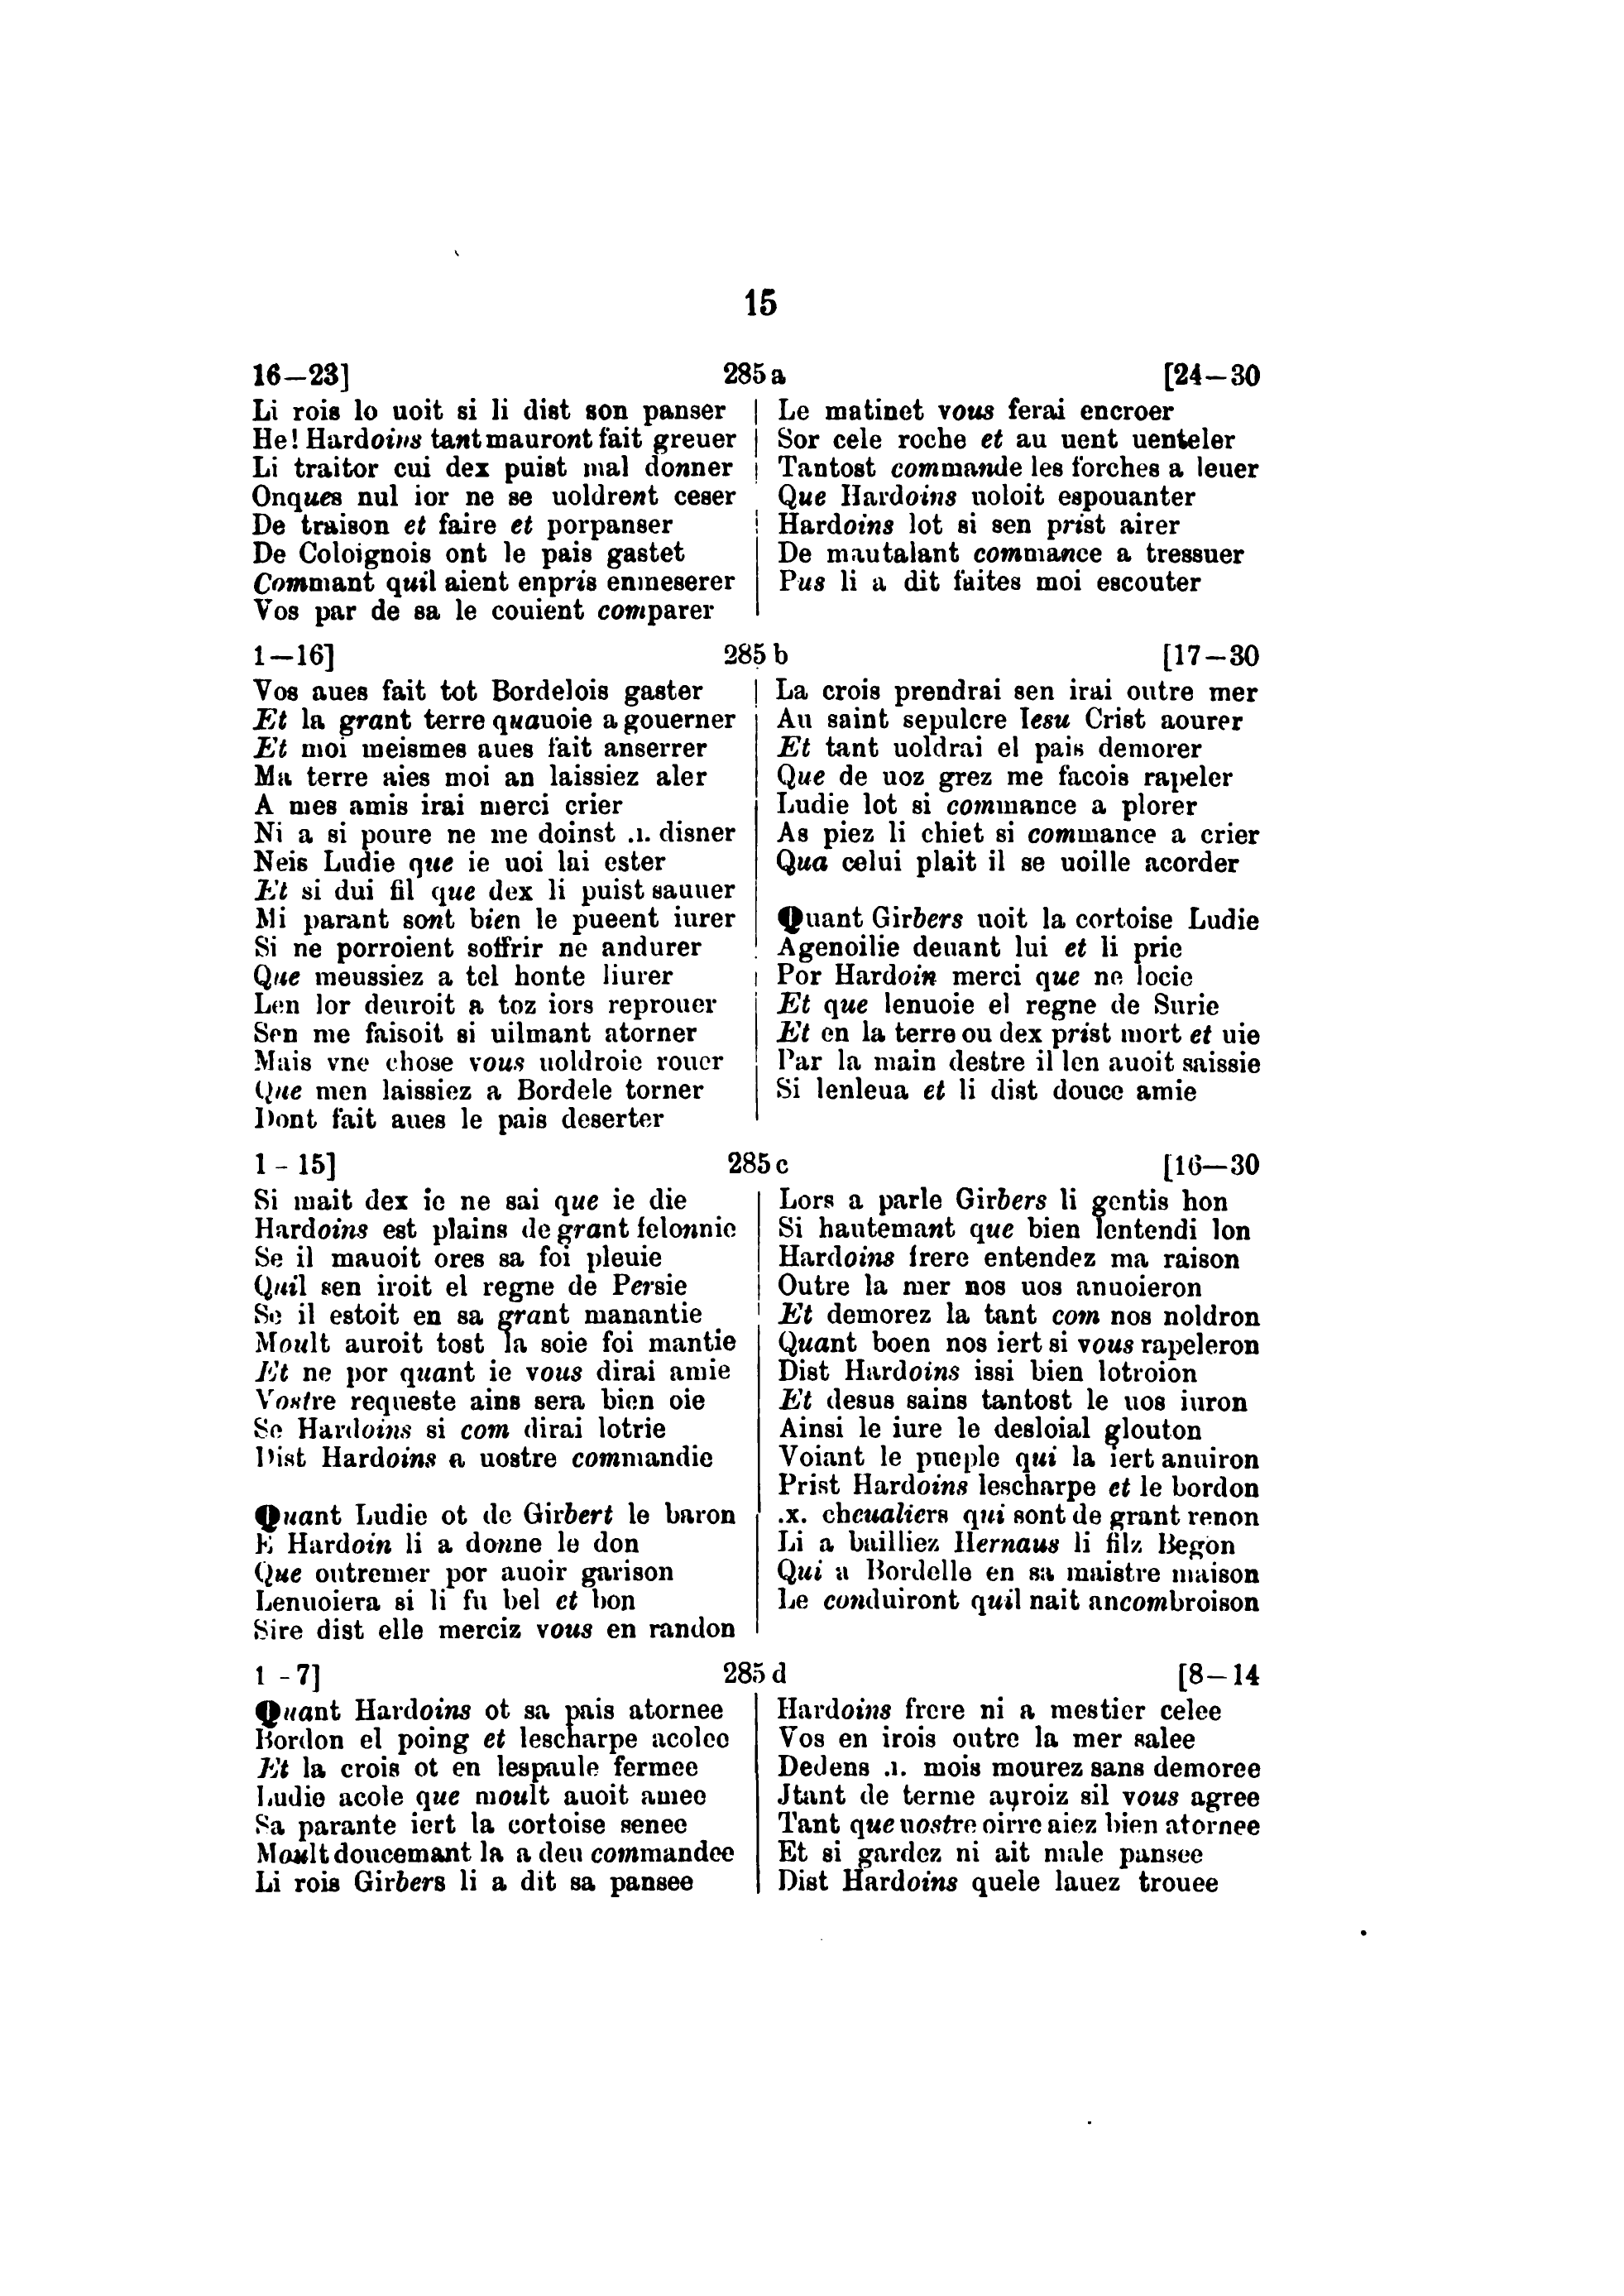 15
16—23] 285a [24—30
Li rois lo uoit si li dist son panser
He! Hardoins tant mauront fait greuer
Li traitor cui dex puist mal donner
Onques nul ior ne se uoldrent ceser
De traison et faire et porpanser
De Coloignois ont le pais gastet
Commant quil aient enpris enmeserer
Vos par de sa le couient comparer
Le matinet vous ferai encroer
Sor cele roche et au uent uenteler
Tantost commande les forches a leuer
Que Hardoins uoloit espouanter
Hardoins lot si sen prist airer
De mautalant commance a tressuer
Pus li a dit faites moi escouter
1—16] 285b [17—30
Vos aues fait tot Bordelois gaster
Et la grant terre quauoie a gouerner
Et moi meismes aues fait anserrer
Ma terre aies moi an laissiez aler
A mes amis irai merci crier
Ni a si poure ne me doinst .ı. disner
Neis Ludie que ie uoi lai ester
Et si dui fil que dex li puist sauuer
Mi parant sont bien le pueent iurer
Si ne porroient soffrir ne andurer
Que meussiez a tel honte liurer
Len lor deuroit a toz iors reprouer
Sen me faisoit si uilmant atorner
Mais vne chose vous uoldroie rouer
Que men laissiez a Bordele torner
Dont fait aues le pais deserter
La crois prendrai sen irai outre mer
Au saint sepulcre Iesu Crist aourer
Et tant uoldrai el pais demorer
Que de uoz grez me facois rapeler
Ludie lot si commance a plorer
As piez li chiet si commance a crier
Qua celui plait il se uoille acorder
Quant Girbers uoit la cortoise Ludie
Agenoilie deuant lui et li prie
Por Hardoin merci que ne locie
Et que lenuoie el regne de Surie
Et en la terre ou dex prist mort et uie
Par la main destre il len auoit saissie
Si lenleua et li dist douce amie
1 - 15] 285c [16—30
Si mait dex ie ne sai que ie die
Hardoins est plains de grant felonnie
Se il mauoit ores sa foi pleuie
Quil sen iroit el regne de Persie
Se il estoit en sa grant manantie
Moult auroit tost la soie foi mantie
Et ne por quant ie vous dirai amie
Vostre requeste ains sera bien oie
Se Hardoins si com dirai lotrie
Dist Hardoins a uostre commandie
Quant Ludie ot de Girbert le baron
E Hardoin li a donne le don
Que outremer por auoir garison
Lenuoiera si li fu bel et bon
Sire dist elle merciz vous en randon
Lors a parle Girbers li gentis hon
Si hautemant que bien lentendi lon
Hardoins frere entendez ma raison
Outre la mer nos uos anuoieron
Et demorez la tant com nos noldron
Quant boen nos iert si vous rapeleron
Dist Hardoins issi bien lotroion
Et desus sains tantost le uos iuron
Ainsi le iure le desloial glouton
Voiant le pueple qui la iert anuiron
Prist Hardoins lescharpe et le bordon
.x. cheualiers qui sont de grant renon
Li a bailliez Hernaus li filz Begon
Qui a Bordelle en sa maistre maison
Le conduiront quil nait ancombroison
1 - 7] 285d [8—14
Quant Hardoins ot sa pais atornee
Bordon el poing et lescharpe acolee
Et la crois ot en lespaule fermee
Ludie acole que moult auoit amee
Sa parante iert la cortoise senee
Moult doucemant la a deu commandee
Li rois Girbers li a dit sa pansee
Hardoins frere ni a mestier celee
Vos en irois outre la mer salee
Dedens .ı. mois mourez sans demoree
Jtant de terme auroiz sil vous agree
Tant que uostre oirre aiez bien atornee
Et si gardez ni ait male pansee
Dist Hardoins quele lauez trouee